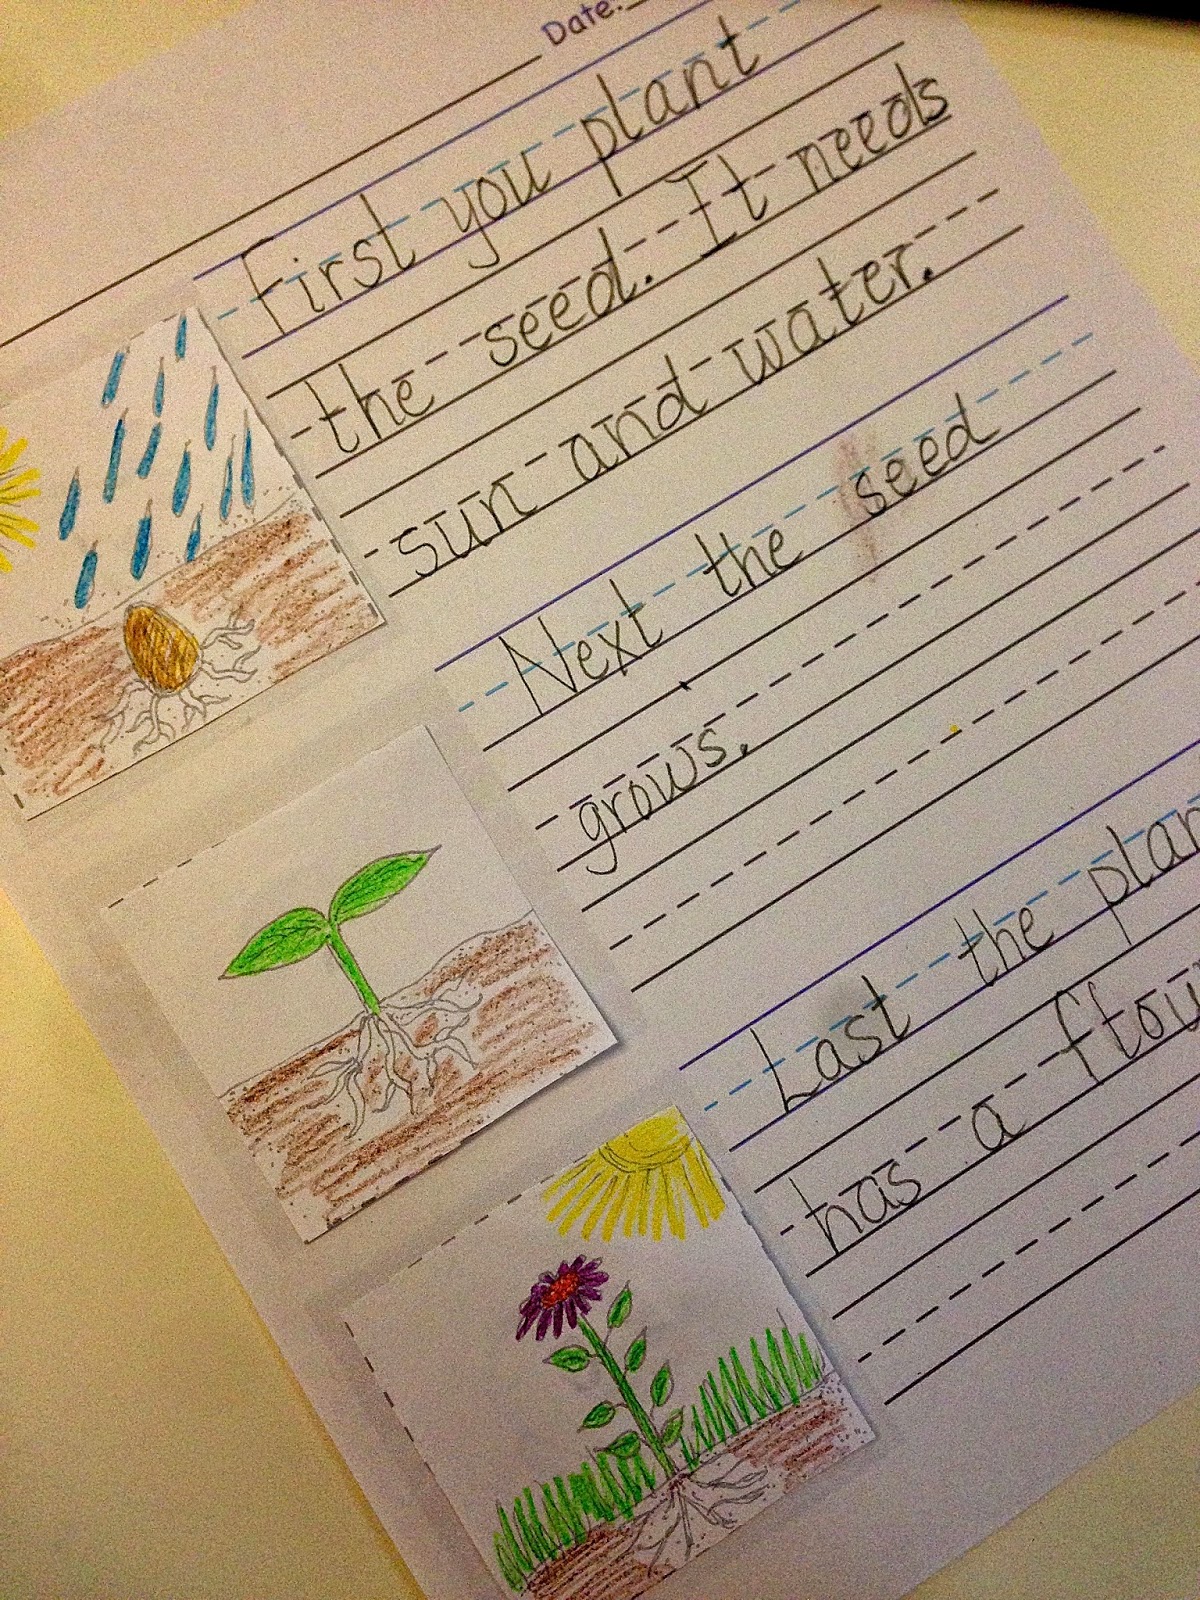 Date:
First you plant
the seed. It needs
sun and water.
Next the seed
grows.
Last the
has a